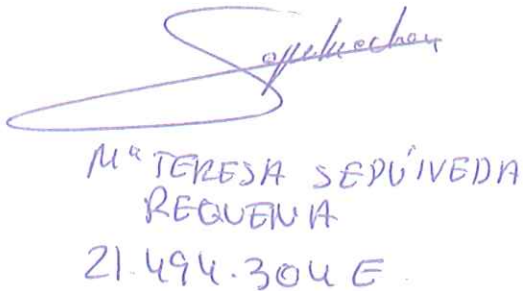 Mª TERESA SEPÚLVEDA
REQUENA
21.494.304 E